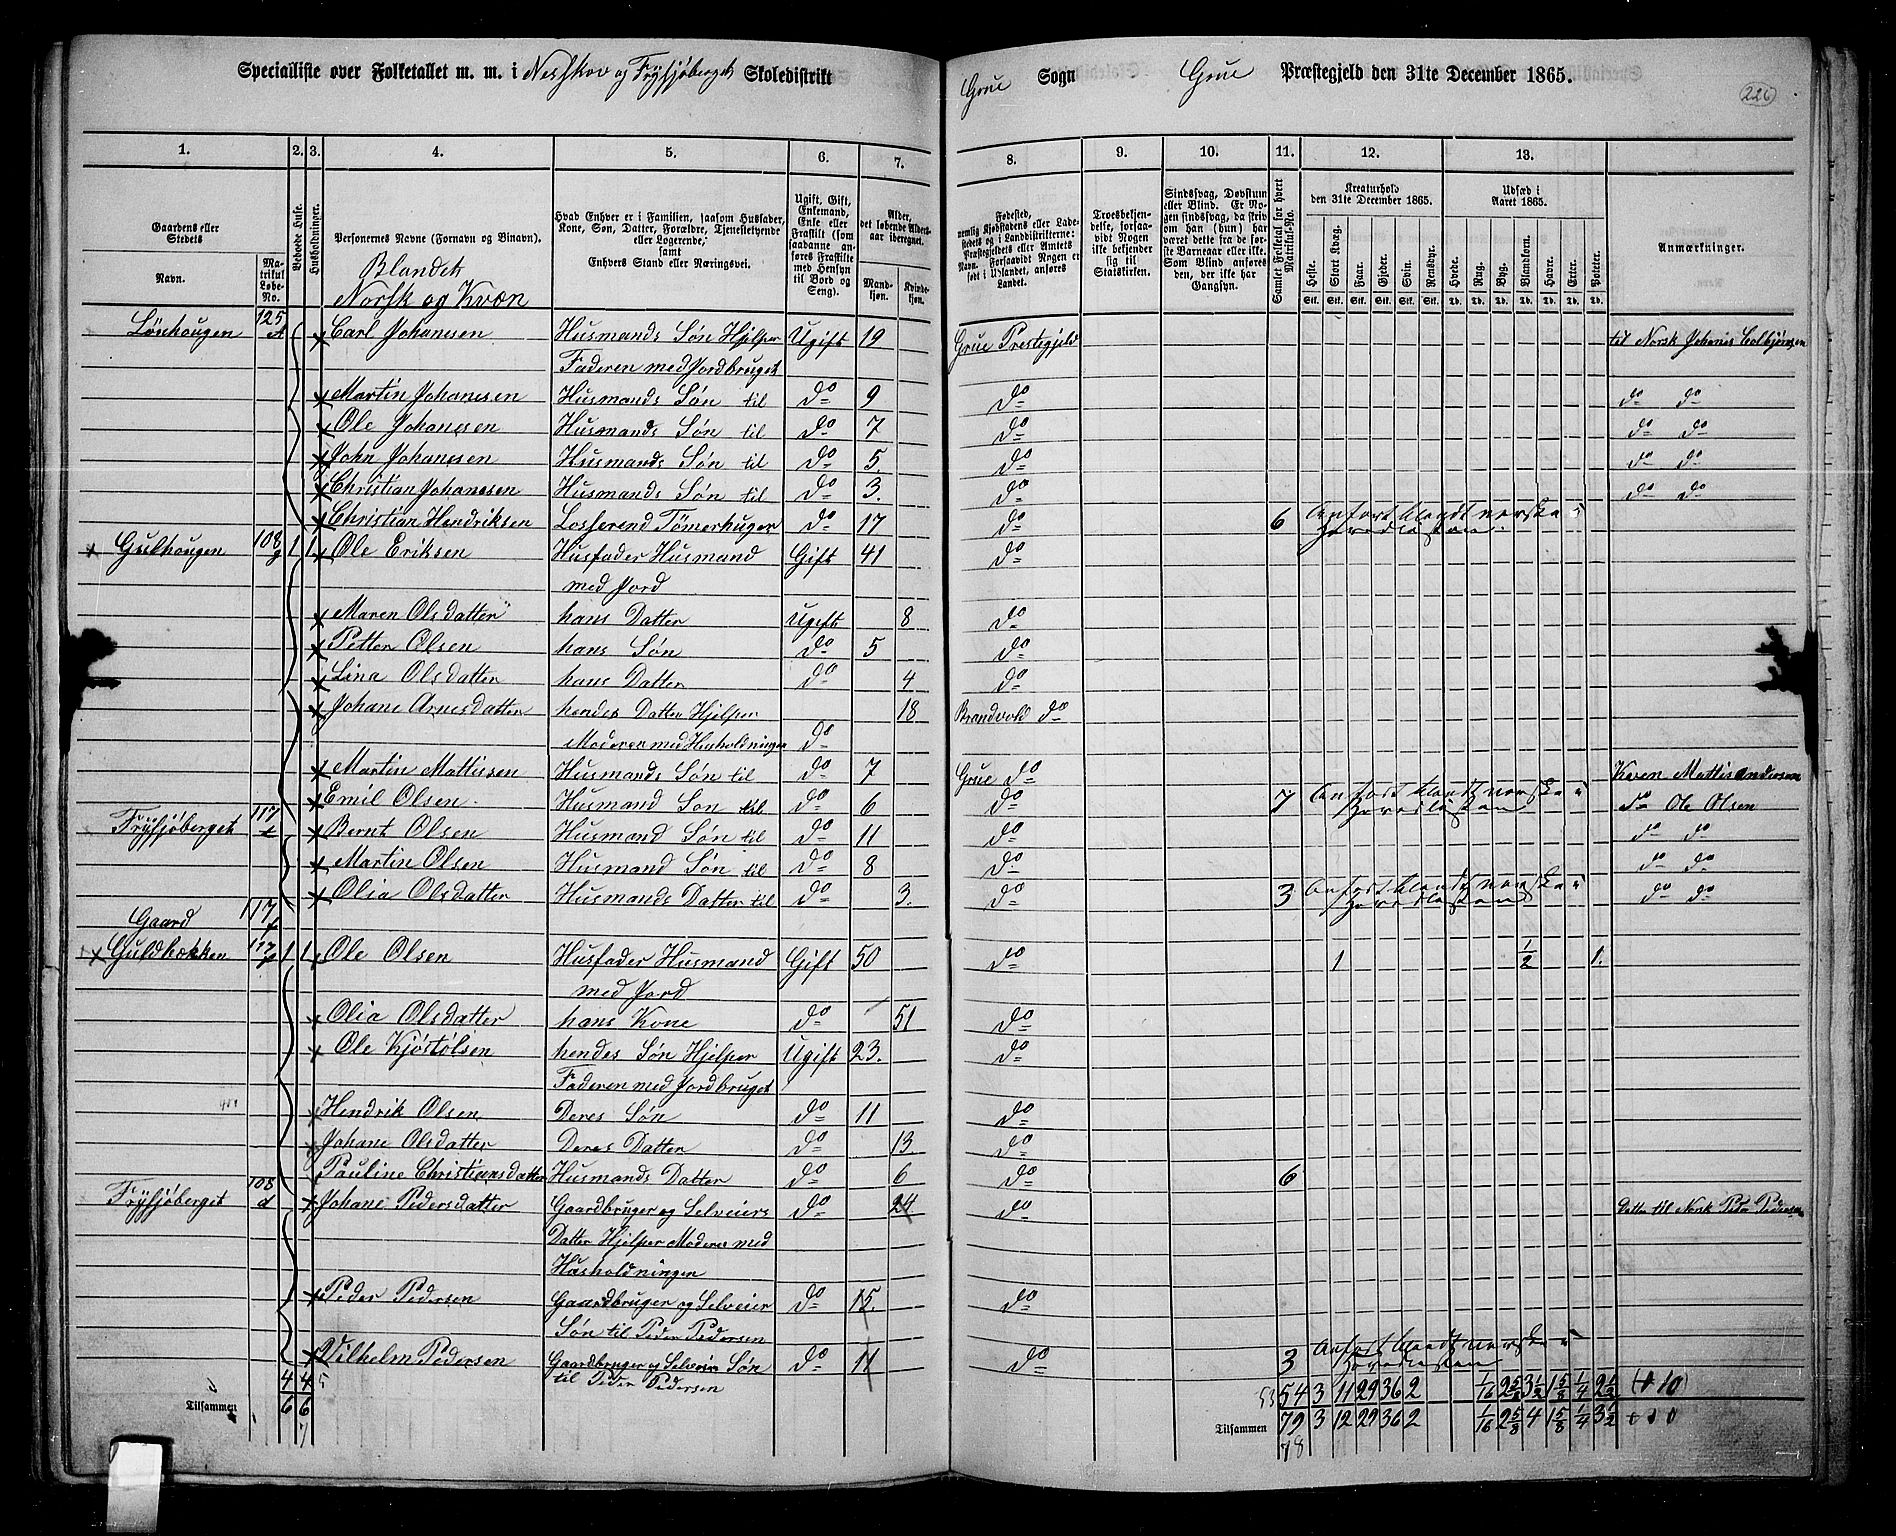 Specialliste over Folketallet m. m. i Nerskov og Frysjøberget Skoledistrikt Grue Sogn Grue Præstegjeld den 31te December 1865.
226
1. 2. 3. 4. 5. 6. 7. 8. 9. 10. 11. 12. 13.
Gaardens eller Stedets
Navn.
Matrikul Løbe-No.
Beboede Huse.
Husholdninger.
Personernes Navne (Fornavn og Binavn).
Blandet
Norsk og Kvæn
Hvad Enhver er i Familien, saasom Husfader, Kone, Søn, Datter, Forældre, Tjenestetyende eller Logerende, samt Enhvers Stand eller Næringsvei.
Ugift, Gift, Enkemand, Enke eller Fraskilt (som saadanne anføres Fraskilte med Hensyn til Bord og Seng).
Alder, det løbende Aldersaar iberegnet.
Mandkjøn. Kvindekjøn.
Fødested, nemlig Kjøbstadens eller Ladestedets og i Landdistrikterne: Præstegjeldets eller Amtets Navn. Forsaavidt Nogen er født i Udlandet, anføres Landet.
Troesbekjendelse, forsaavidt Nogen ikke bekjender sig til Statskirken.
Sindssvag, Døvstum eller Blind. Er Nogen sindssvag, da skriv om han (hun) har været dette fra de første Barneaar eller ikke. Som Blind anføres den, der ikke har Gangsyn.
Samlet Folketal for hvert Matrikul-No.
Kreaturhold den 31te December 1865.
Heste. Stort Kvæg. Faar. Gjeder. Svin. Rensdyr.
Stk. Stk. Stk. Stk. Stk. Stk.
Udsæd i Aaret 1865.
Hvede. Rug. Byg. Blandkorn. Havre. Erter. Poteter.
Td. Td. Td. Td. Td. Td. Td.
Anmærkninger.
Lønhougen 125 A Carl Johansen Husmands Søn Hjelper Ugift 19 Grue Prestegjeld til Norsk Johanes Colbjønsen
Faderen med Jordbruget
Martin Johanesen Husmands Søn til do 9 do do do
Ole Johanesen Husmands Søn til do 7 do do do
John Johanesen Husmands Søn til do 5 do do do
Christian Johanesen Husmands Søn til do 3. do do do
Christian Hendriksen Losjerend Tømerhuger do 17 do 6 Anført blandt norske i Hovedlisten
Gulhougen 108 g 1 1 Ole Eriksen Husfader Husmand Gift 41 do
med Jord
Maren Olsdatter hans Datter Ugift 8 do
Petter Olsen hans Søn do 5 do
Lina Olsdatter hans Datter do 4 do
Johane Arnesdatter hendes Datter Hjelper 18 Brandvold do
Moderen med Husholdningen do
Martin Mattissen Husmands Søn til do 7 Grue do Kven Mattis Andersen
Emil Olsen Husmand Søn til do 6 do 7 Anført blandt norske i Hovedlisten do Ole Olsen
Frysjøberget 117 e Bernt Olsen Husmand Søn til do 11 do do do
Martin Olsen Husmand Søn til do 8 do do do
Olia Olsdatter Husmands Datter til do 3. do 3 Anført blandt norske i Hovedlisten do do
Gaard 117 f
Guldbækken 117 g 1 1 Ole Olsen Husfader Husmand Gift 50 do 1 1/2 1.
med Jord
Olia Olsdatter hans Kone do 51 do
Ole Kjøstolsen hendes Søn Hjelper Ugift 23. do
Faderen med Jordbruget
Hendrik Olsen Deres Søn do 11 do
Johane Olsdatter Deres Datter do 13. do
Pauline Christiansdatter Husmands Datter do 6 do 6
Frysjøberget 108 d Johane Pedersdatter Gaardbruger og Selveiers do 24 do Datter til Norsk Peder Pedersen
Datter Hjelper Moderen med
Husholdningen
Peder Pedersen Gaardbruger og Selveier do 15. do
Søn til Peder Pedersen
Vilhelm Pedersen Gaardbruger og Selveier Søn do 11 do 3 Anført blandt norske i Hovedlisten
til Peder Pedersen
4 4 5 53 54 3 11 29 36 2 1/16 2 5/8 3 1/2 1 5/8 1/4 2 1/2 (+ 10)
Tilsammen 6 6 Tilsammen 79 3 12 29 36 2 1/16 2 5/8 4 1 5/8 1/4 3 1/2
7 78